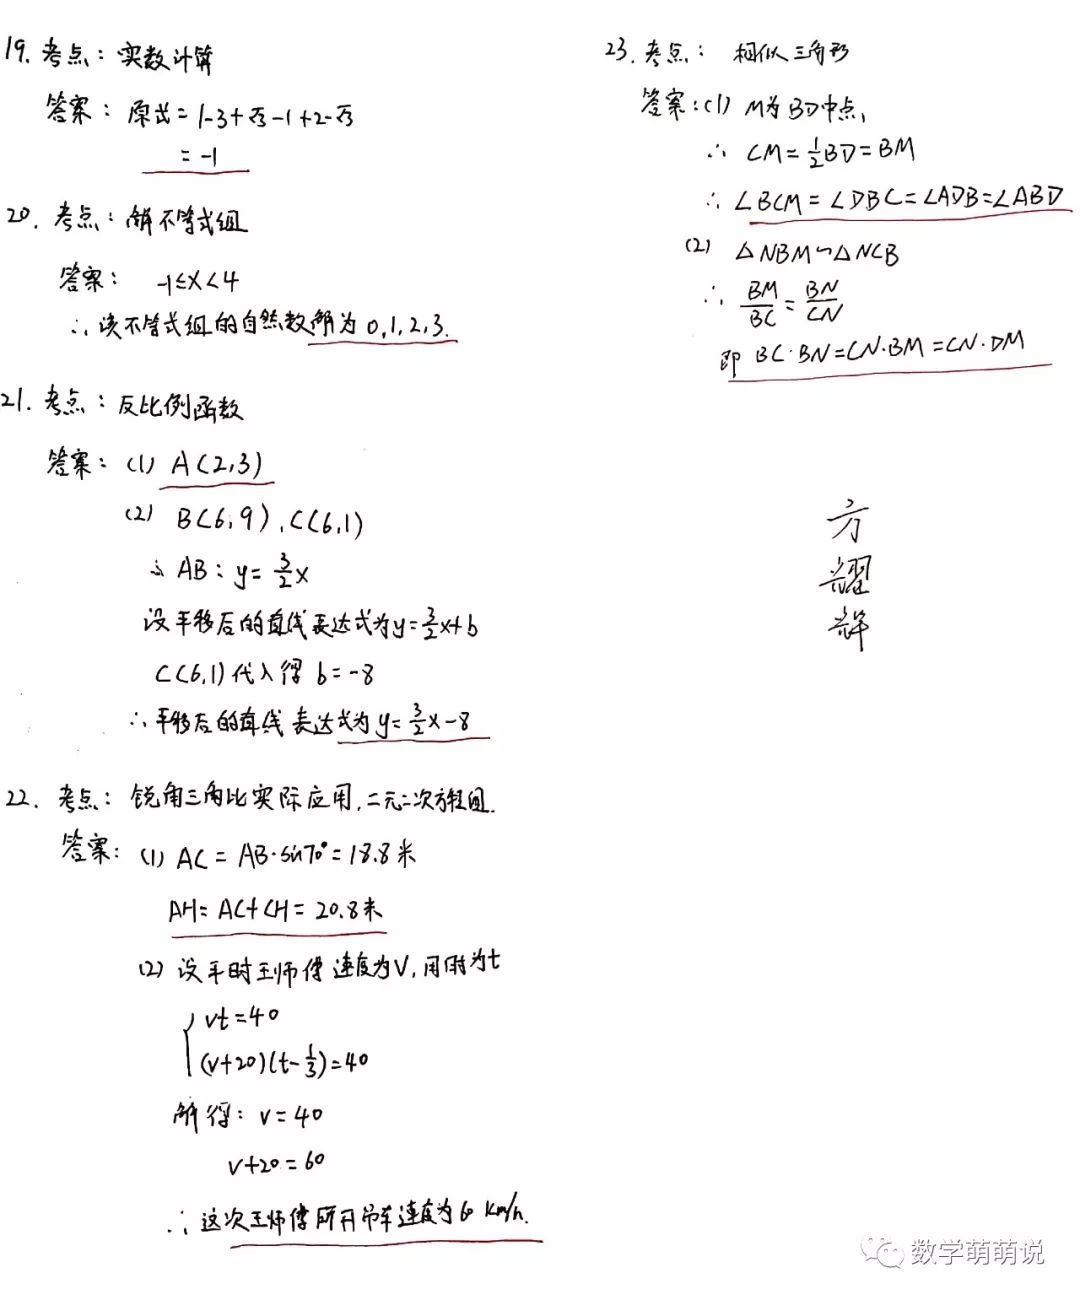 19. 考点: 实数计算
答案: 原式=1-3+√3-1+2-√3
=-1
20. 考点: 解不等式组
答案: -1≤x<4
∴该不等式组的自然数解为0,1,2,3.
21. 考点: 反比例函数
答案: (1) A(2,3)
(2) B(6,9), C(6,1)
∴ AB: y=3/2x
设平移后的直线表达式为y=3/2x+b
C(6,1)代入得 b=-8
∴平移后的直线表达式为y=3/2x-8
22. 考点: 锐角三角比实际应用,二元二次方程组.
答案: (1) AC=AB·sin70°=18.8米
AH=AC+CH=20.8米
(2) 设平时王师傅速度为V,用时为t
vt=40
(v+20)(t-1/3)=40
解得: v=40
v+20=60
∴这次王师傅所开吊车速度为60 Km/h.
23. 考点: 相似三角形
答案:(1) M为BD中点,
∴ CM=1/2BD=BM
∴ ∠BCM=∠DBC=∠ADB=∠ABD
(2) △NBM∽△NCB
∴ BM/BC=BN/CN
即 BC·BN=CN·BM=CN·DM
方
耀
辉
数学萌萌说